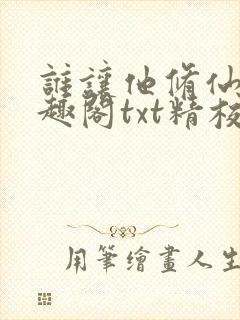 誰讓他脩仙
趣閣txt精校
用筆繪畫人生